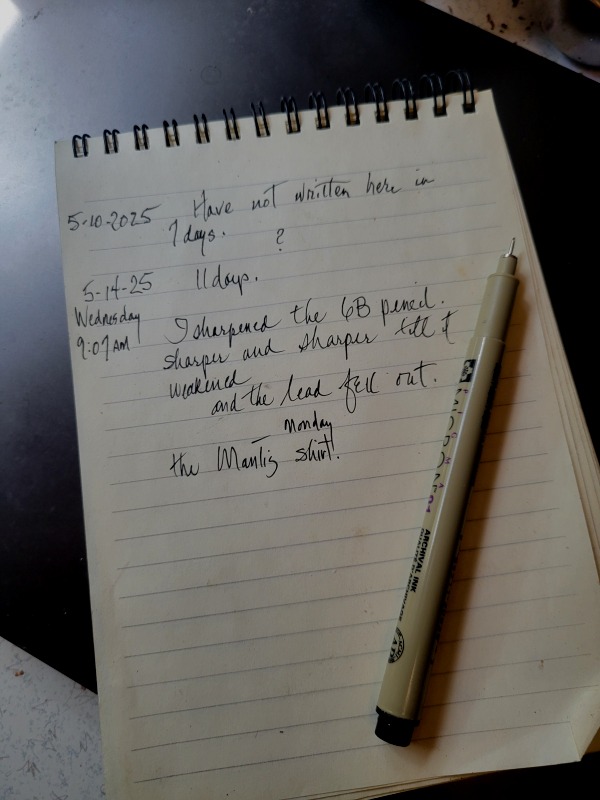 5-10-2025 Have not written here in
7 days. ?
5-14-25 11 days.
Wednesday
9:07 AM
I sharpened the 6B pencil.
sharper and sharper till it
weakened
and the lead fell out.
Monday
the Mantis shirt.
ARCHIVAL INK